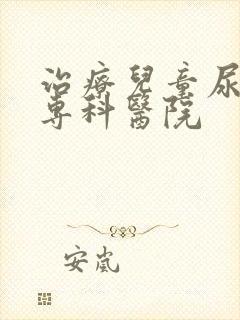 治療兒童尿
專科醫院
安嵐